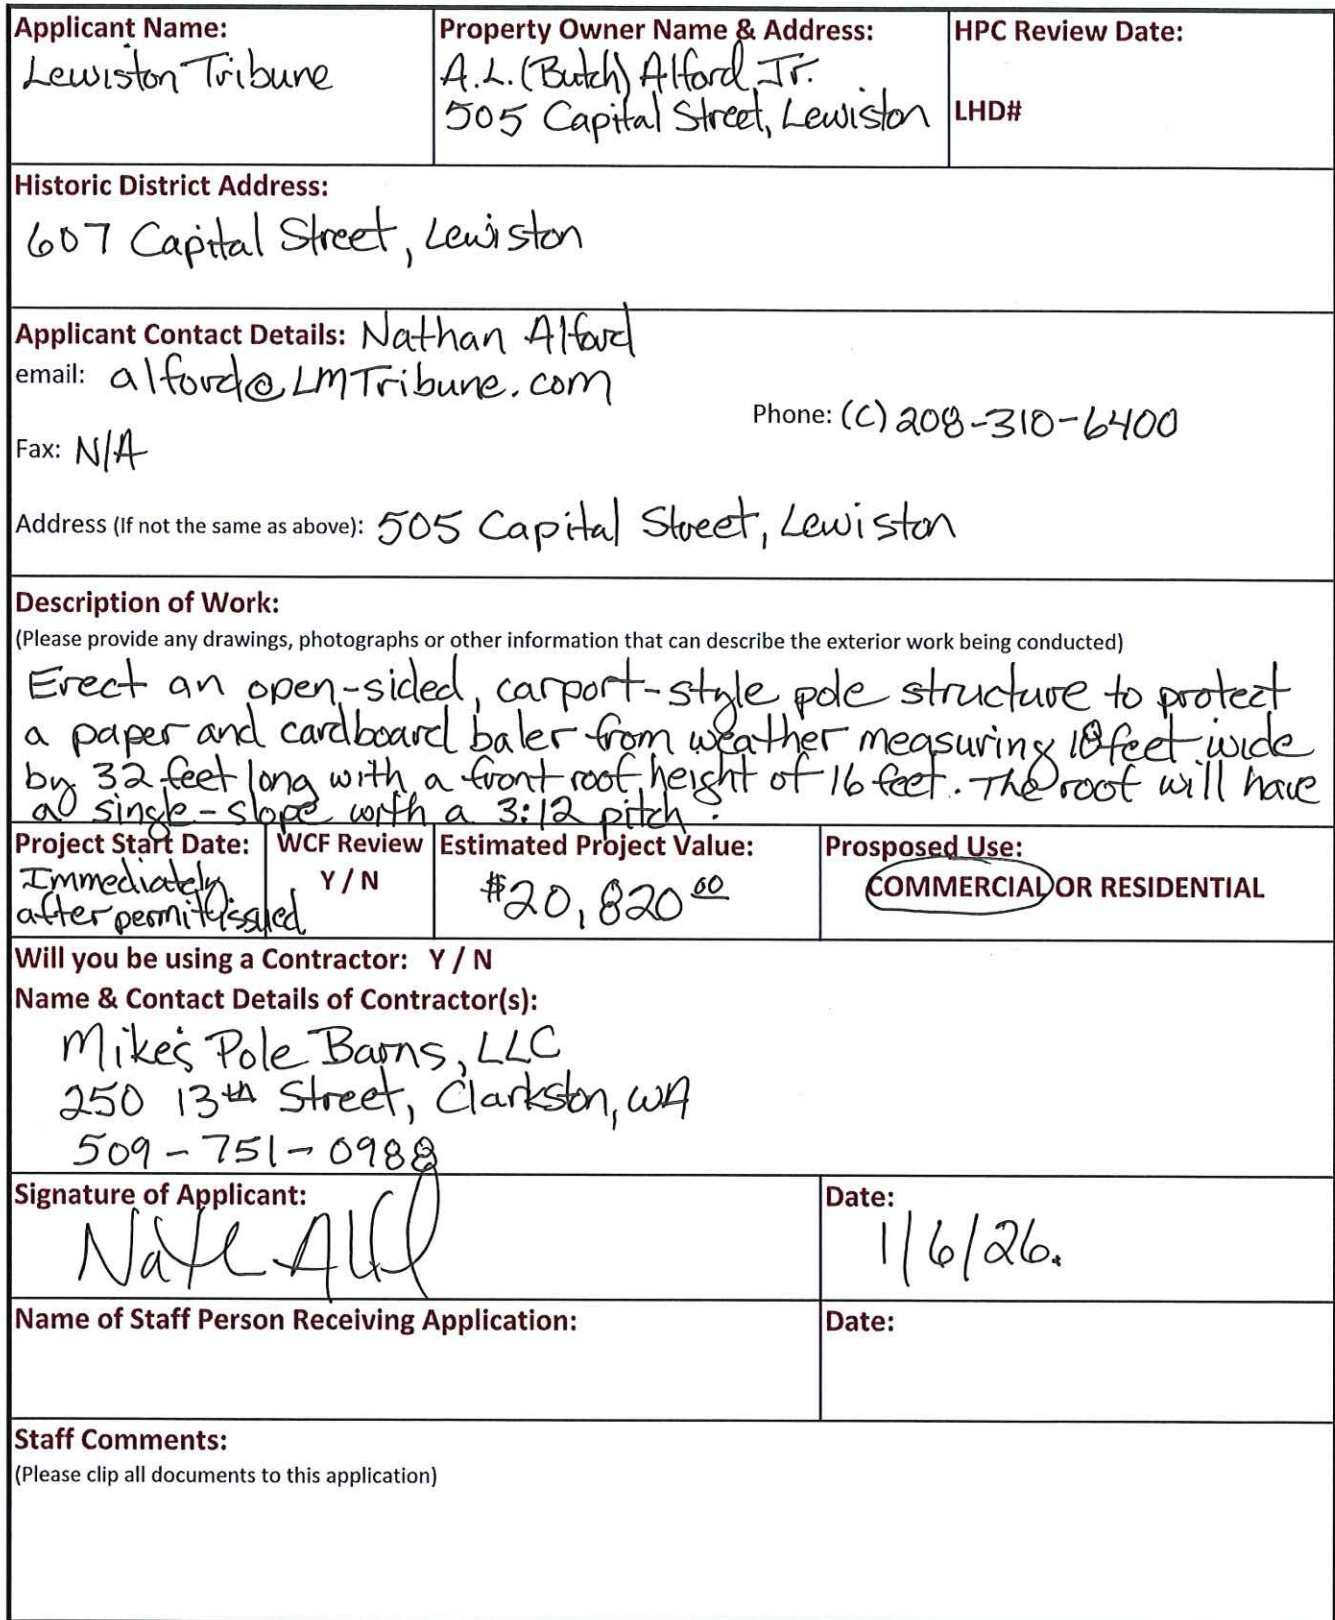 Applicant Name:
Lewiston Tribune
Property Owner Name & Address:
A.L. (Butch) Alford, Jr.
505 Capital Street, Lewiston
HPC Review Date:
LHD#
Historic District Address:
607 Capital Street, Lewiston
Applicant Contact Details: Nathan Alford
email: alford@LMTribune.com
Phone: (C) 208-310-6400
Fax: N/A
Address (If not the same as above): 505 Capital Street, Lewiston
Description of Work:
(Please provide any drawings, photographs or other information that can describe the exterior work being conducted)
Erect an open-sided, carport-style pole structure to protect
a paper and cardboard baler from weather measuring 18 feet wide
by 32 feet long with a front roof height of 16 feet. The roof will have
a single-slope with a 3:12 pitch.
Project Start Date:
Immediately
after permit issued
WCF Review
Y / N
Estimated Project Value:
$20,820.00
Prosposed Use:
COMMERCIAL OR RESIDENTIAL
Will you be using a Contractor: Y / N
Name & Contact Details of Contractor(s):
Mike's Pole Barns, LLC
250 13th Street, Clarkston, WA
509-751-0988
Signature of Applicant:
Nate Alf
Date:
1/6/26.
Name of Staff Person Receiving Application:
Date:
Staff Comments:
(Please clip all documents to this application)